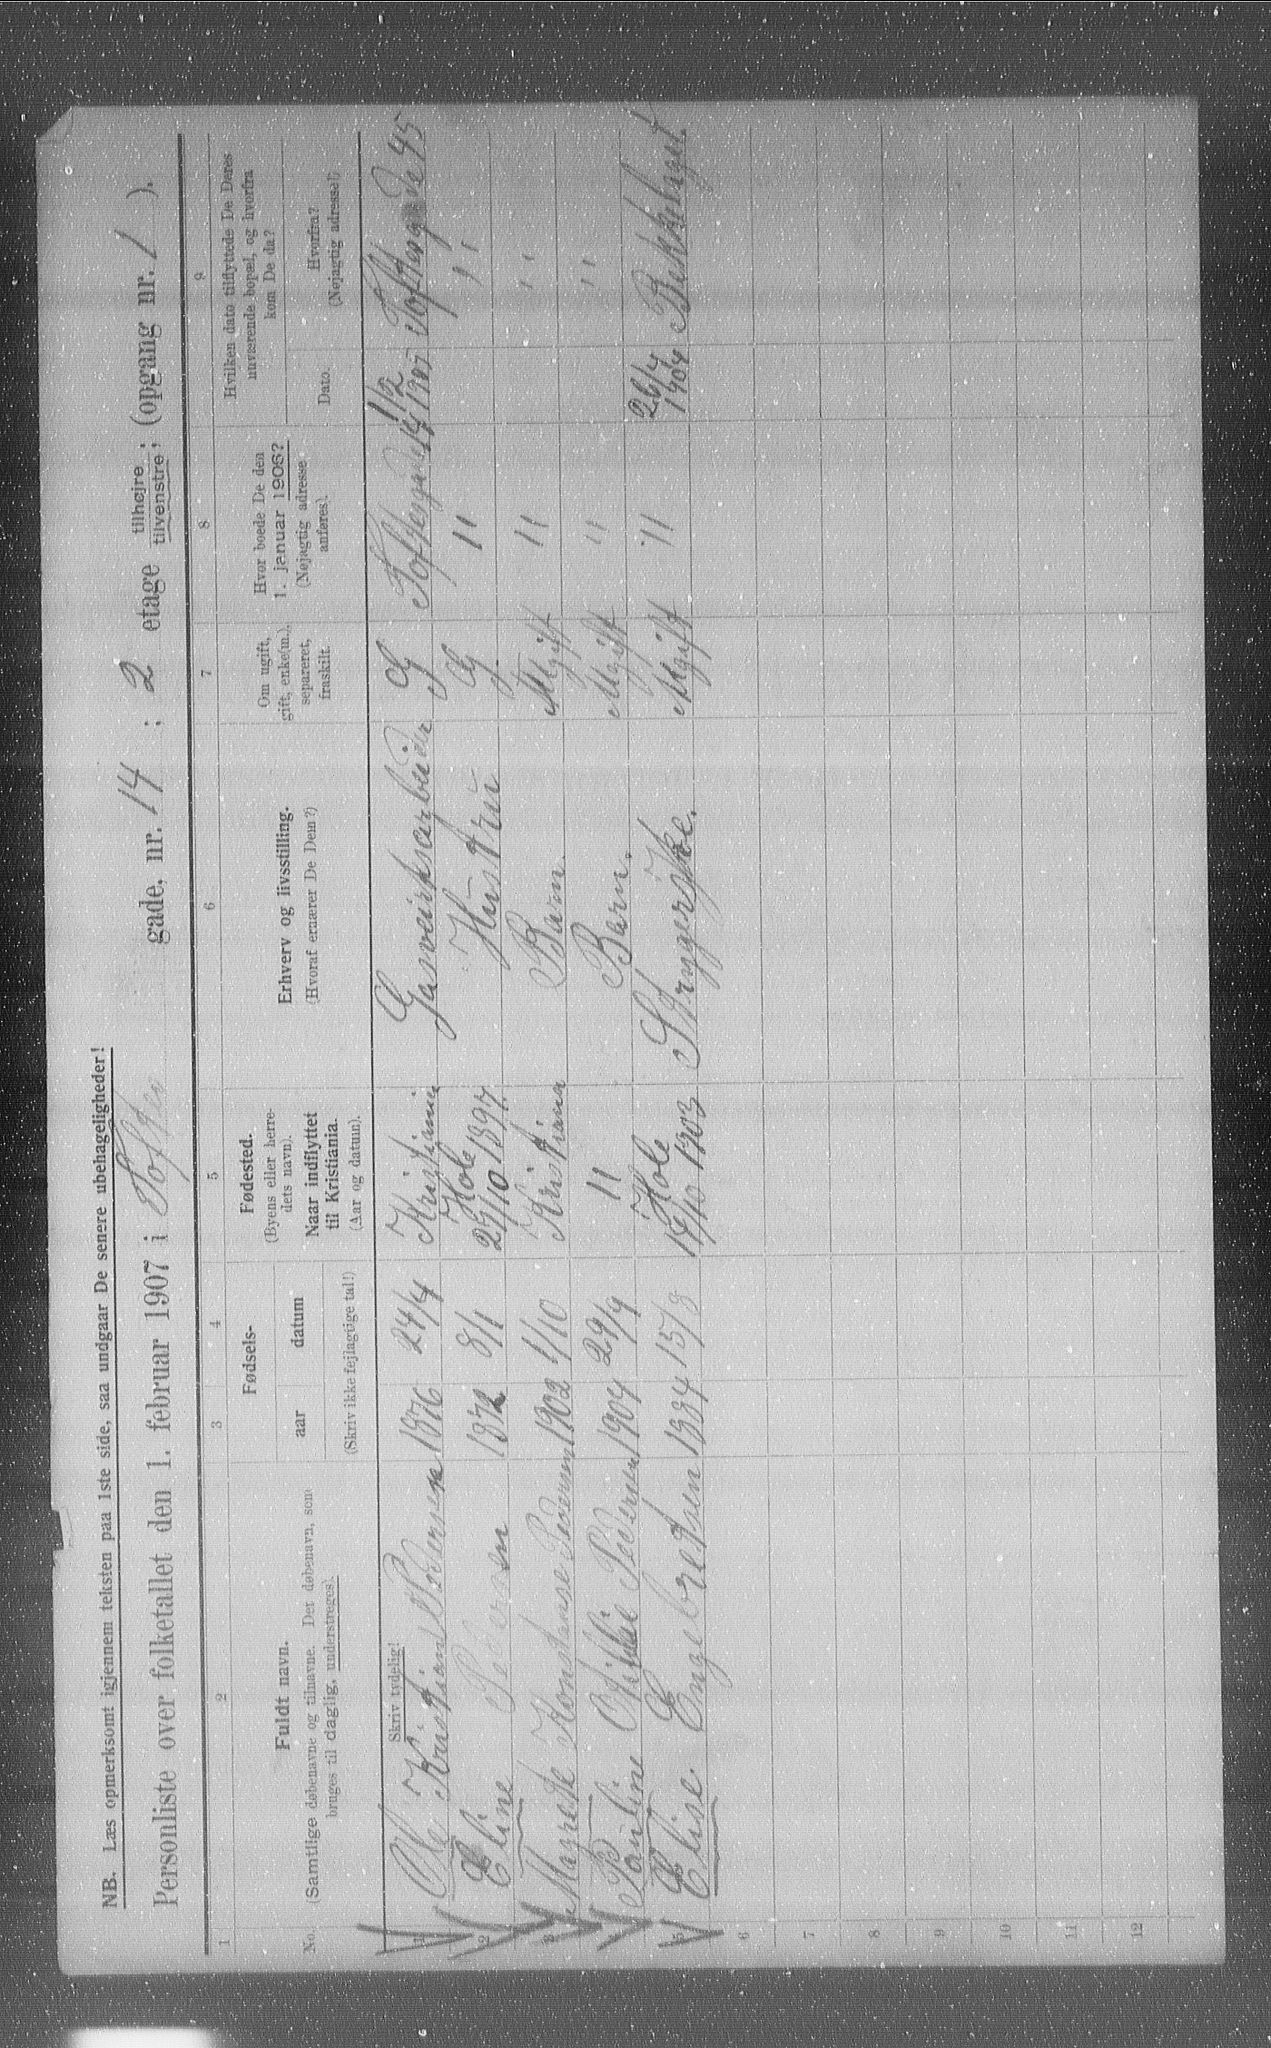 NB. Læs opmerksomt igjennem teksten paa 1ste side, saa undgaar De senere ubehageligheder!
Personliste over folketallet den 1. februar 1907 i Tofter gade, nr. 14 ; 2 etage tilhøjre tilvenstre ; (opgang nr. 1 ).
1 2 3 4 5 6 7 8 9
No.
Fuldt navn.
(Samtlige døbenavne og tilnavne. Det døbenavn, som
bruges til daglig, understreges).
Fødsels-
aar datum
(Skriv ikke fejlagtige tal!)
Fødested.
(Byens eller herre-
dets navn).
Naar indflyttet
til Kristiania.
(Aar og datum).
Erhverv og livsstilling.
(Hvoraf ernærer De Dem?)
Om ugift,
gift, enke(m.),
separeret,
fraskilt.
Hvor boede De den
1. januar 1906?
(Nøjagtig adresse
anføres).
Hvilken dato tilflyttede De Deres
nuværende bopæl, og hvorfra
kom De da?
Dato.
Hvorfra?
(Nøjagtig adresse!)
Skriv tydelig!
1 Ole Kristian Pedersen 1876 24/4 Kristiania Gasverksarbeider G Toftesgade 14 1/2 1907 Toftesgade 45
2 Eline Pedersen 1872 8/1 Hole 29/10 1897 Hustru G " "
3 Magrete Konstanse Pedersen 1902 1/10 Kristiania Barn. Ugift " "
4 Pauline Otilie Pedersen 1904 29/9 " Barn. Ugift " "
5 Elise Engebretsen 1884 15/8 Hole 14/10 1903 Strygerske. Ugift " 26/4 1904 Bekkelaget.
6
7
8
9
10
11
12